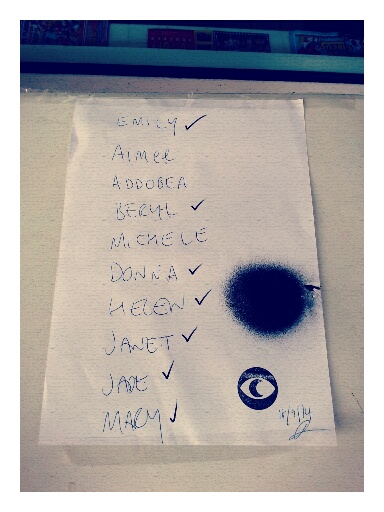 EMILY ✓
Aimee
ADDOBEA
BERYL ✓
MICHELE
DONNA ✓
HELEN ✓
JANET ✓
JADE ✓
MARY ✓